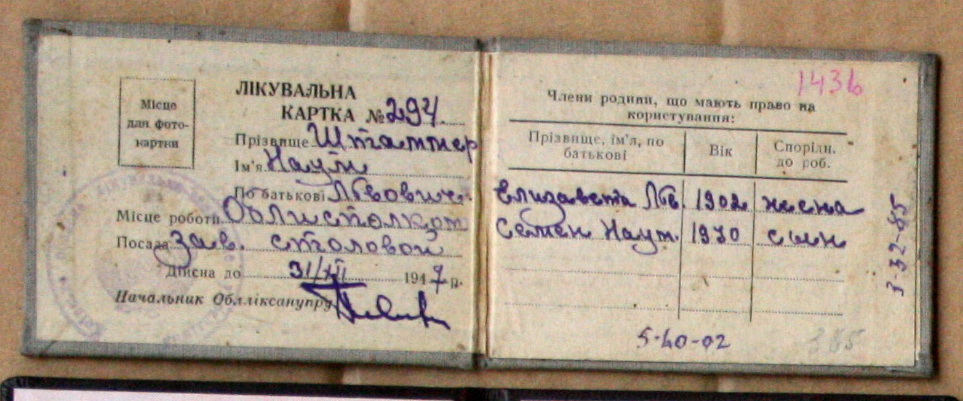 Місце
для фото-
картки
ЛІКУВАЛЬНА
КАРТКА № 294
Прізвище Штаммер
Ім'я Наум
По батькові Львович
Місце роботи Облисполком
Посада зав. столовой
Дійсна до 31/XII 1947 р.
Начальник Обллікcанупру
1436
Члени родини, що мають право на
користування:
Прізвище, ім'я, по
батькові
Вік
Спорідн.
до роб.
Елизавета Ль. 1902 жена
Семен Наум. 1930 сын
3-32-85
5-40-02
385